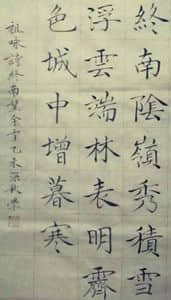 終南陰嶺秀積雪
浮雲端林表明霽
色城中增暮寒
祖咏詩終南望余雪乙未深秋